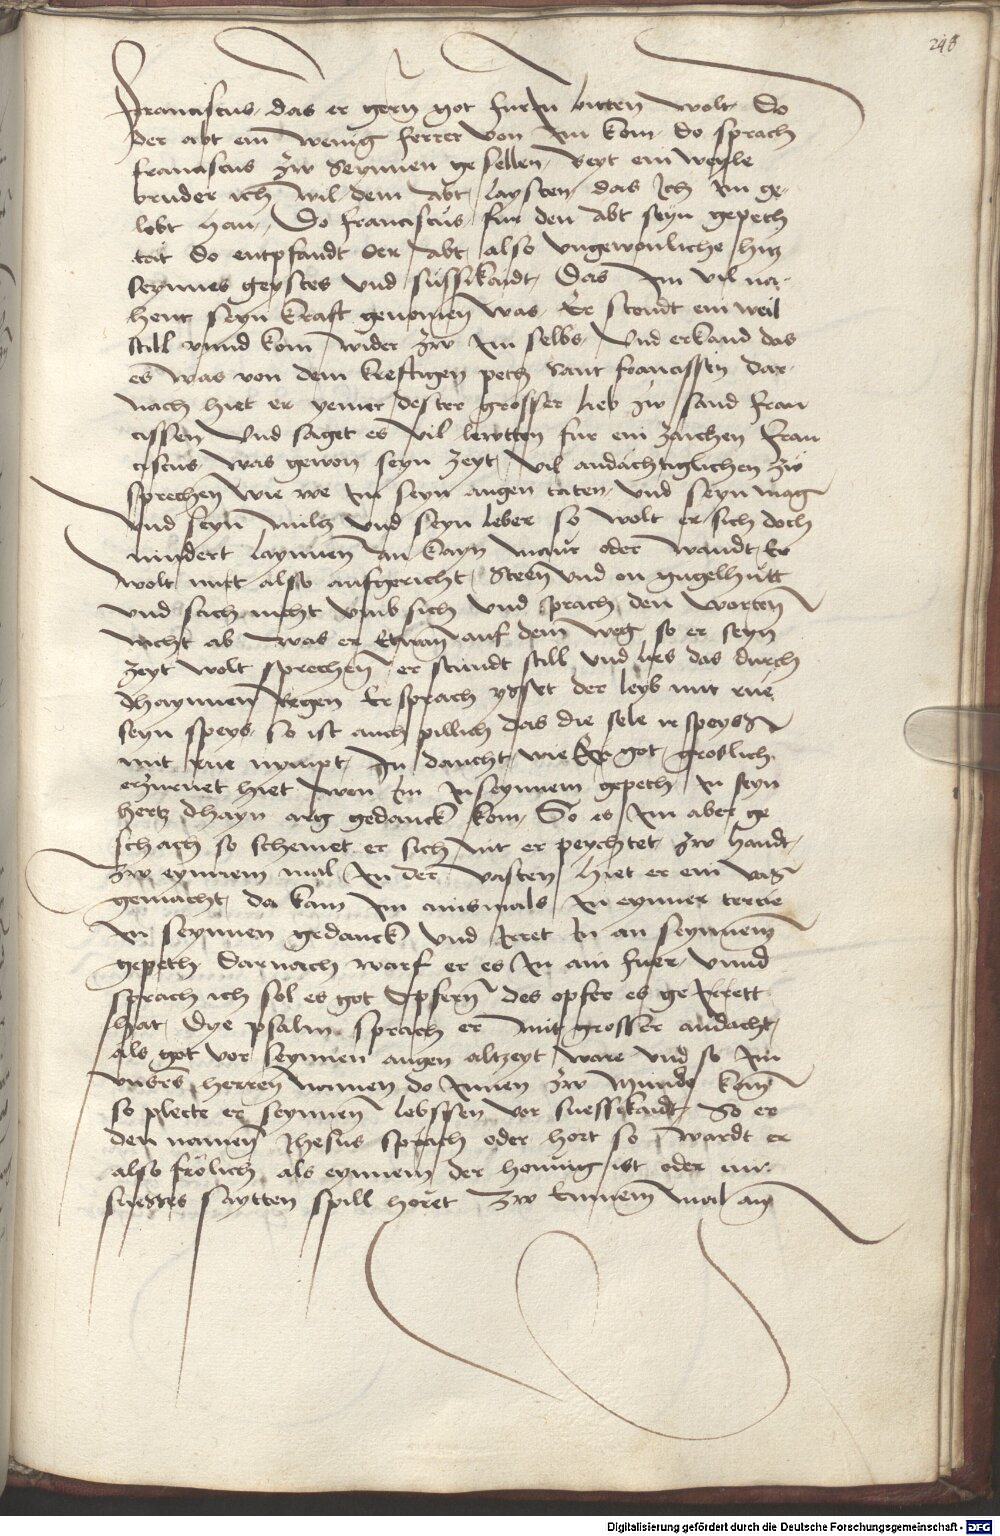 248
Franciscus das er gern got fur In bitten wolt Do
der abt ein wenig ferrer von Im kom do sprach
franciscus zw seynnen gesellen beyt ein weyle
bruder ich wil dem abt laysten das Ich Im ge
lobt han Do franciscus fur den abt seyn gepeth
tät do entpfandt der abt also ungewonliche hitz
seynnes geystes und süssikaidt Das Im vil na
hent seyn krafft genomen was Er stondt ein weil
still unnd kom wider zw Im selbs Und erkand das
es was von dem kreftigen peth sant francissen dar
nach hiet er yemer dester grosser lieb zw sand fran
cissen Und saget es vil lewtten fur ein zaichen fran
ciscus was gewon seyn zeyt vil andächtiglichen zw
sprechen wie we Im seyn augen taten und seyn mag
und seyn miltz und seyn leber so wolt er sich doch
nindert laynnen an kayn maur oder wandt Er
wolt nurt also aufgericht steen und on gugelhütt
und sach nicht umb sich und sprach den worten
nicht ab was er etwan auf dem weg so er seyn
zeyt wolt sprechen er stundt still und lies das durch
dhaynnen regen Er sprach ysset der leyb mit rüe
seyn speys so ist auch pillich das die sele ir speys
mit rue nympt In daucht wie Er got groslich
erzurnet hiet wen Im In seynnem gepeth In seyn
hertz dhayn arg gedanck kom So es Im aber ge
schach so schemet er sich nit er peychtet zw handt
zw eynnem mal In der vasten hiet er ein vas
gemacht da kam Im ainsmals In eynner tercie
In seynnen gedanck und Irret In an seynnem
gepeth Darnach warf er es In ain fuer unnd
sprach ich sol es got opfern des opfer es geIrrett
hat Dye psalm sprach er mit grosser andacht
als got vor seynnen augen altzeyt ware und so Im
unsers herren namen do Innen zw munde kom
so plecte er seynnen lebssen vor suessikaidt So er
den namen Jhesus sprach oder hort so wardt er
also frölich als eynnem der honing ist oder
suesses saytten spill horet zw eunem mal am
Digitalisierung gefördert durch die Deutsche Forschungsgemeinschaft - DFG